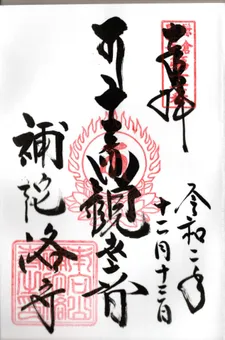 奉拝
令和二年
十二月十三日
十一面観世音
補陀洛寺